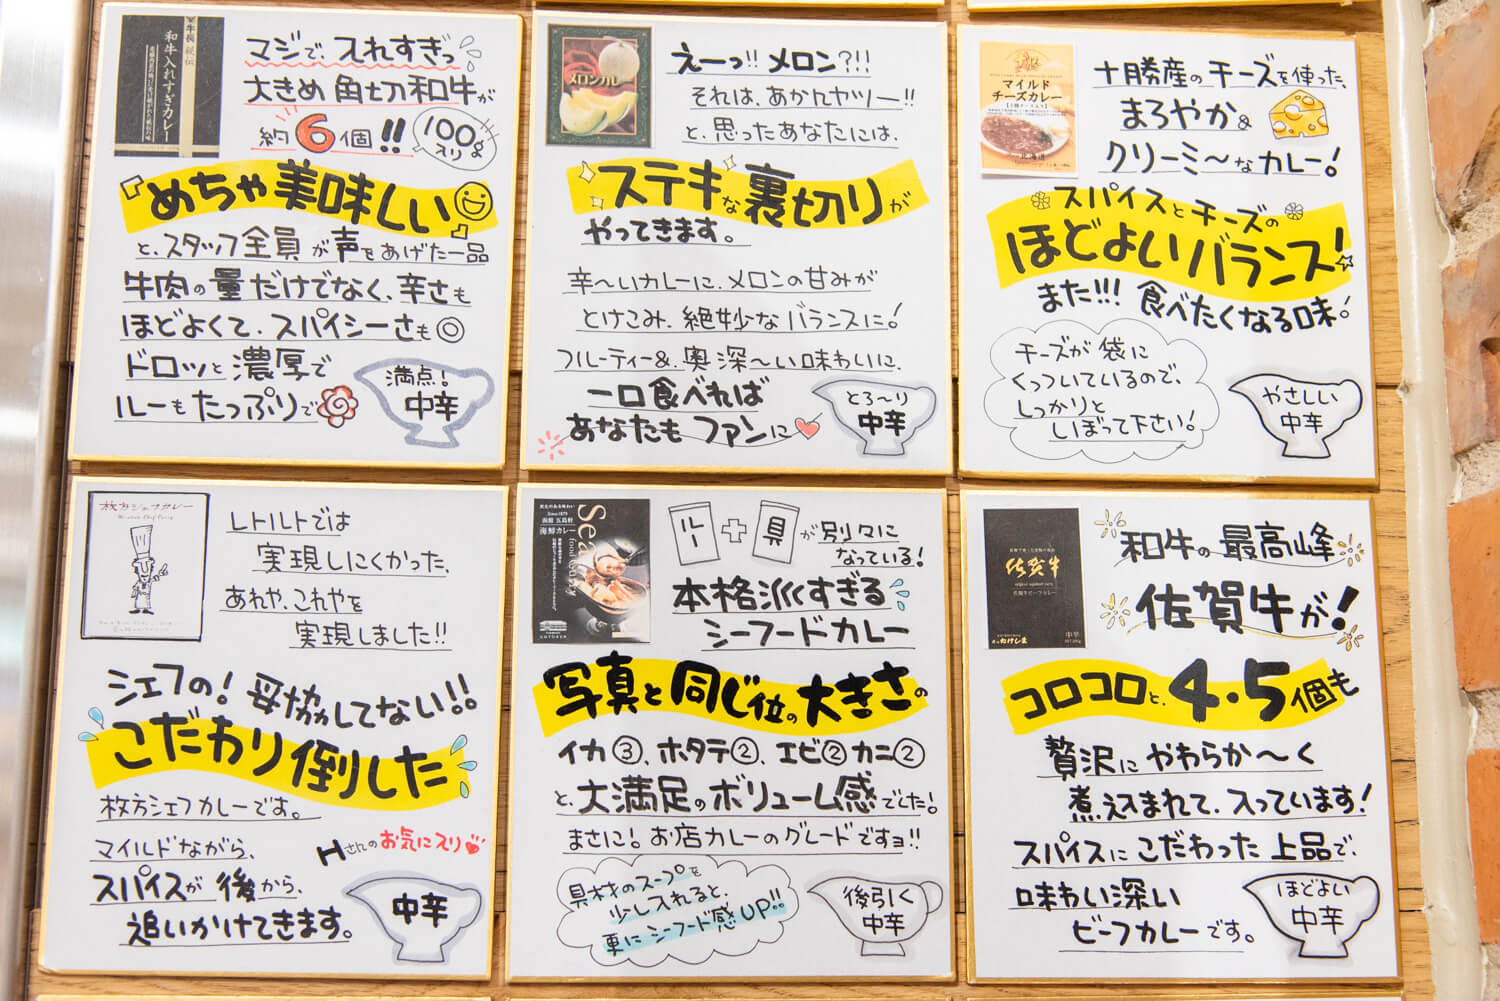 和牛入れすぎカレー
マジで、入れすぎっ
大きめ 角切和牛が
約6個!!
100g
入り
めちゃ美味しい
と、スタッフ全員が声をあげた一品
牛肉の量だけでなく、辛さも
ほどよくて、スパイシーさも◎
ドロッと濃厚で
ルーもたっぷりで
満点!
中辛
メロンカレー
えーっ!! メロン?!!
それは、あかんヤツー!!
と、思ったあなたには、
ステキな裏切りが
やってきます。
辛〜いカレーに、メロンの甘みが
とけこみ、絶妙なバランスに!
フルーティー&、奥深〜い味わいに、
一口食べれば
あなたも ファンに
とろ〜り
中辛
マイルド
チーズカレー
十勝産のチーズを使った、
まろやか&
クリーミ〜なカレー!
スパイスとチーズの
ほどよいバランス!
また!!! 食べたくなる味!
チーズが袋に
くっついているので、
しっかりと
しぼって下さい!
やさしい
中辛
枚方シェフカレー
レトルトでは
実現しにくかった、
あれや、これやを
実現しました!!
シェフの! 妥協してない!!
こだわり倒した
枚方シェフカレーです。
マイルドながら、
Hさんのお気に入り
スパイスが後から、
追いかけてきます。
中辛
Since1879
函館 五島軒
海鮮カレー
Seafood curry
ルー+具が別々に
なっている!
本格派すぎる
シーフードカレー
写真と同じ位の大きさの
イカ③、ホタテ②、エビ②カニ②
と、大満足のボリューム感でした!
まさに! お店カレーのグレードですョ!!
具材のスープを
少し入れると、
更にシーフード感UP!!
後引く
中辛
佐賀牛
佐賀牛ビーフカレー
中辛
和牛の最高峰
佐賀牛が!
コロコロと、4・5個も
贅沢にやわらか〜く
煮込まれて、入っています!
スパイスにこだわった上品で、
味わい深い
ビーフカレーです。
ほどよい
中辛